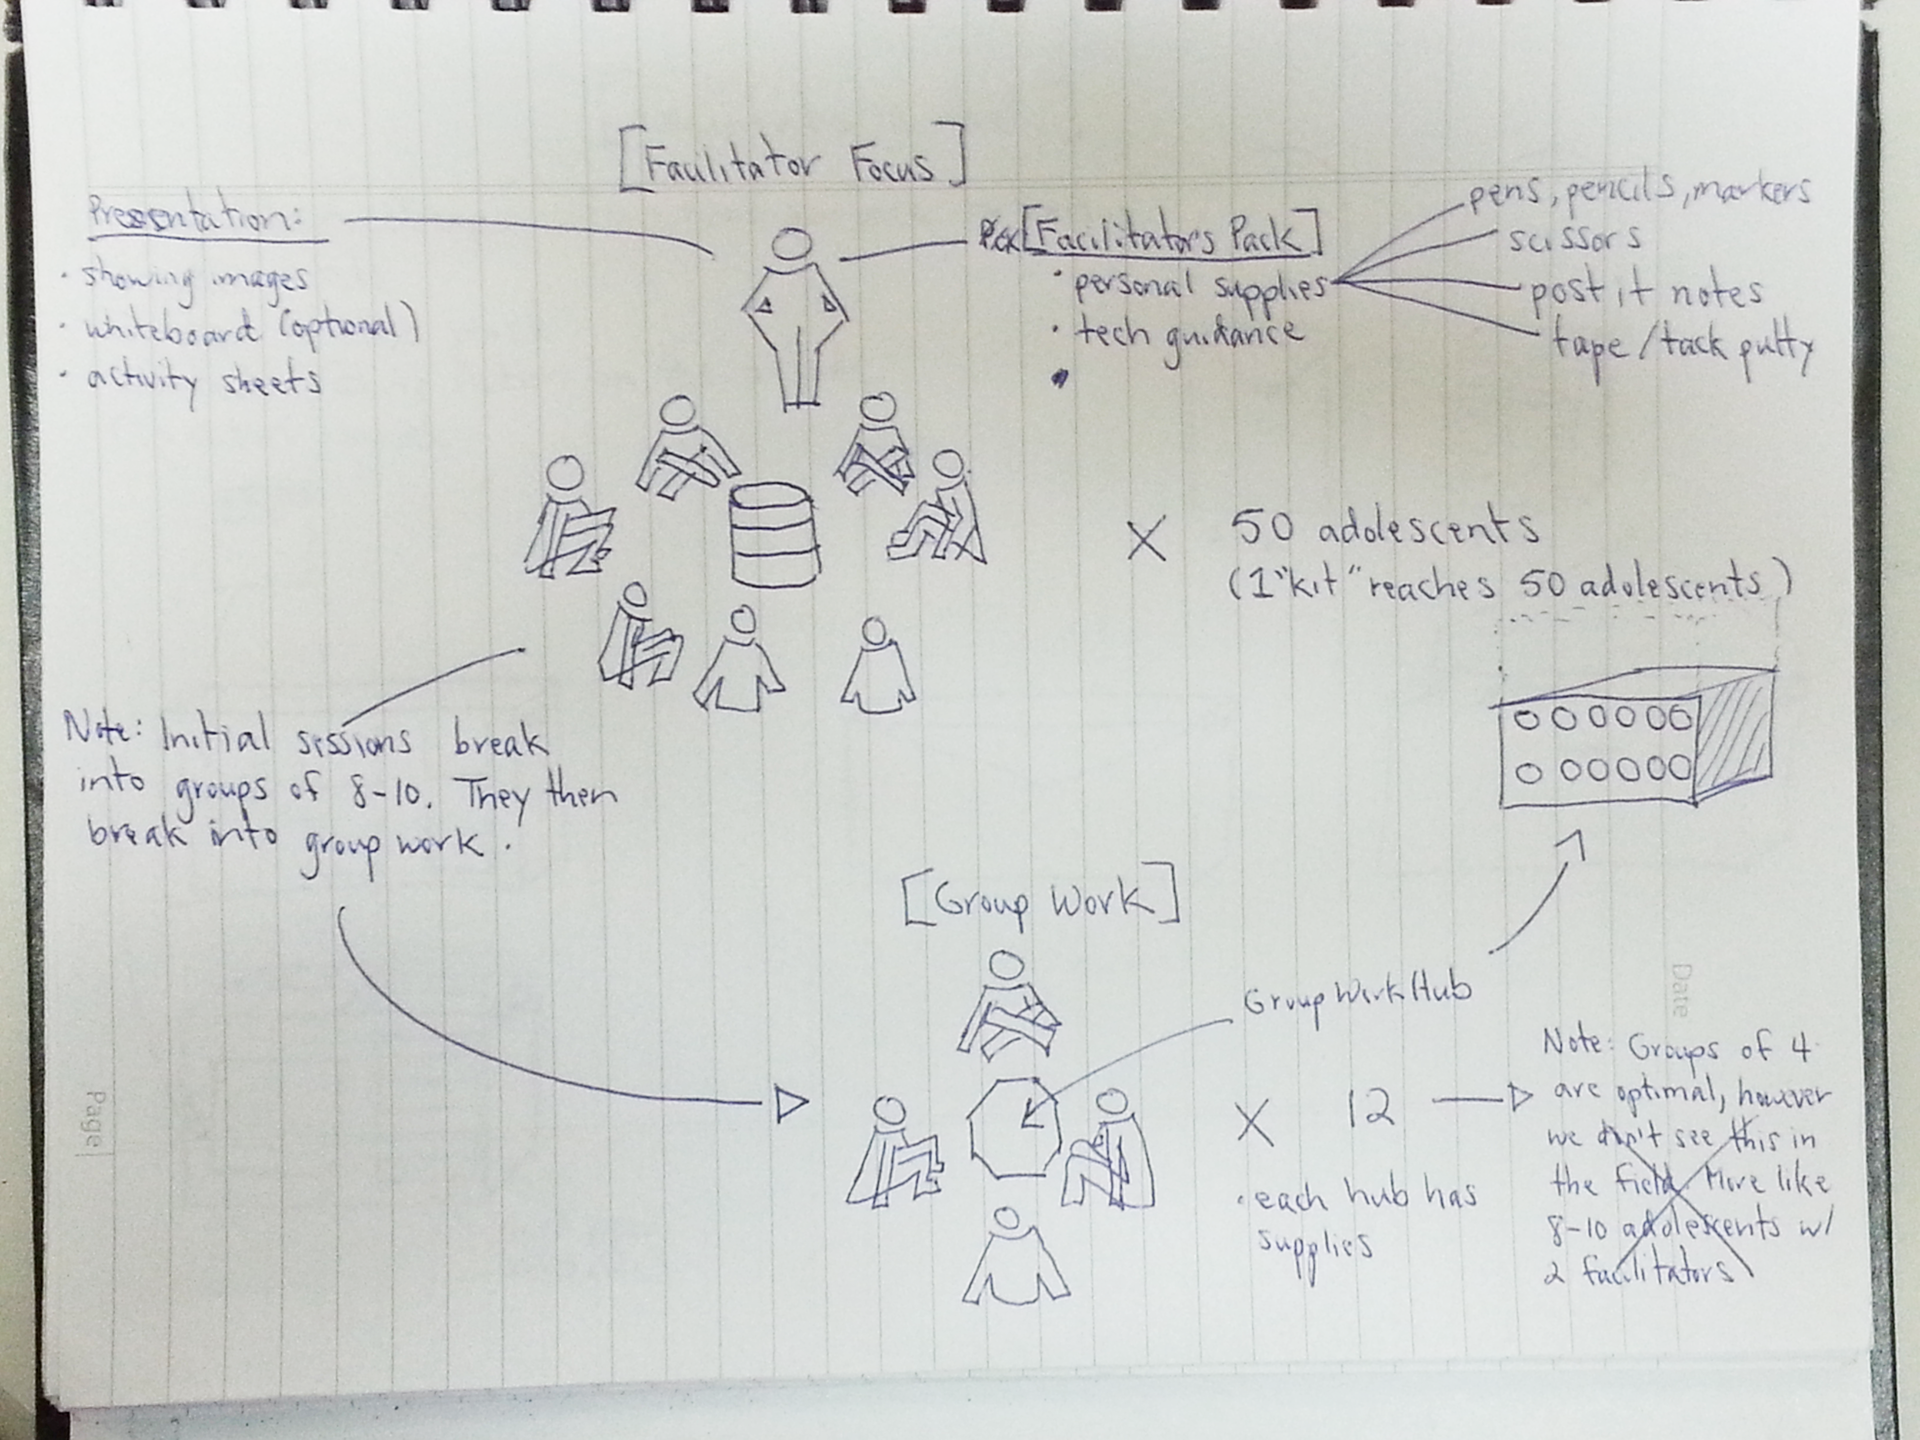 [Facilitator Focus]
Presentation:
· showing images
· whiteboard (optional)
· activity sheets
[Facilitators Pack]
· personal supplies
· tech guidance
pens, pencils, markers
scissors
post it notes
tape/tack putty
X 50 adolescents
(1 "kit" reaches 50 adolescents)
Note: Initial sessions break
into groups of 8-10. They then
break into group work.
[Group Work]
Group Work Hub
X 12
· each hub has
supplies
Note: Groups of 4
are optimal, however
we don't see this in
the field. More like
8-10 adolescents w/
2 facilitators
Date
Page